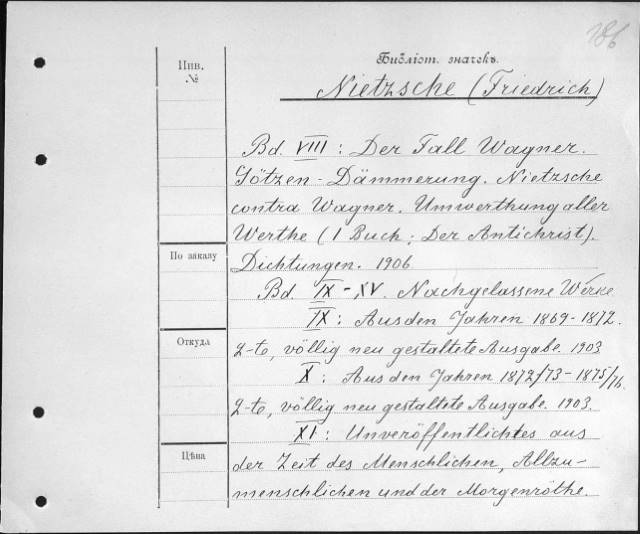 186
Библіот. значекъ.
Инв.
№
Nietzsche (Friedrich)
Bd. VIII : Der Fall Wagner.
Götzen-Dämmerung. Nietzsche
contra Wagner. Umwerthung aller
Werthe (1 Buch: Der Antichrist).
По заказу
Dichtungen. 1906
Bd. IX-XV. Nachgelassene Werke
IX : Aus den Jahren 1869-1872.
Откуда
2-te, völlig neu gestaltete Ausgabe. 1903
X : Aus den Jahren 1872/73-1875/76.
2-te, völlig neu gestaltete Ausgabe. 1903.
XI : Unveröffentlichtes aus
Цѣна
der Zeit des Menschlichen, Allzu-
menschlichen und der Morgenröthe.